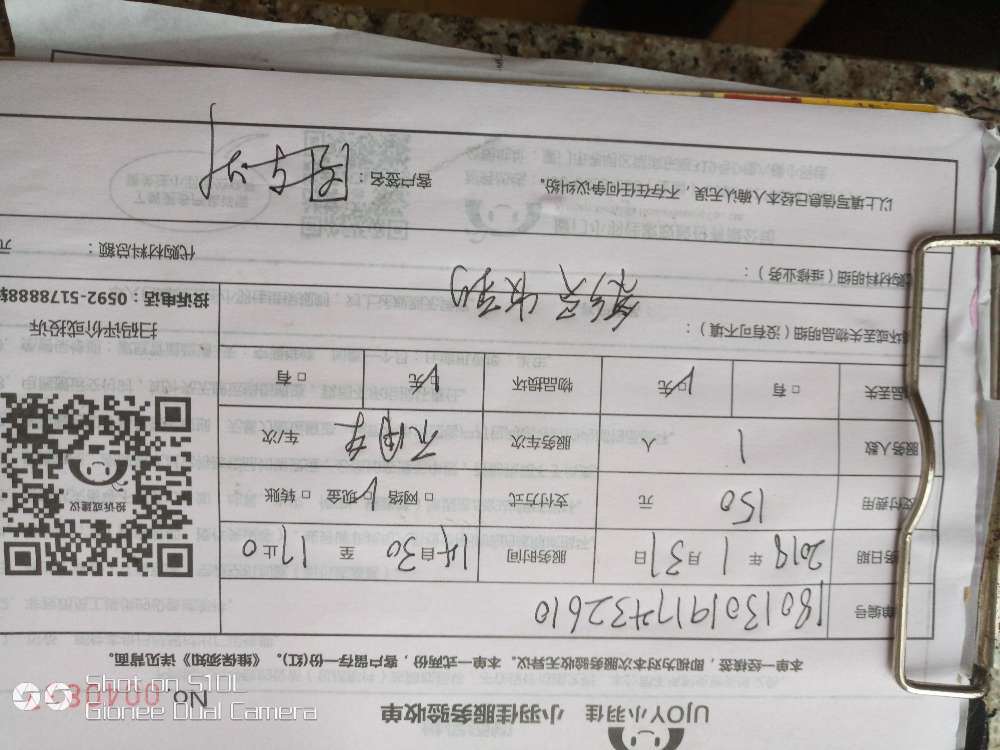 UJOY小羽佳 小羽佳服务验收单
No. 0040
本单一经核签，即视为对本次服务验收无异议。本单一式两份，客户留存一份(红)。《维保须知》详见背面。
单编号
务日期 2019 年 1 月 31 日 服务时间 14 自 30 至 17 止 0
支付费用 150 元 支付方式 □网络 ☑现金 □转账
服务人数 1 人 服务车次 车/次
品丢失 □有 ☑无 物品损坏 ☑无 □有
坏或丢失物品明细（没有可不填）：
购材料明细（维修业务）：
代购材料总额： 元
以上填写信息已经本人确认无误，不存在任何争议纠纷。 客户签名：
投诉或建议
扫码评价或投诉
投诉电话：0592-5178888转
Shot on S10L
Gionee Dual Camera